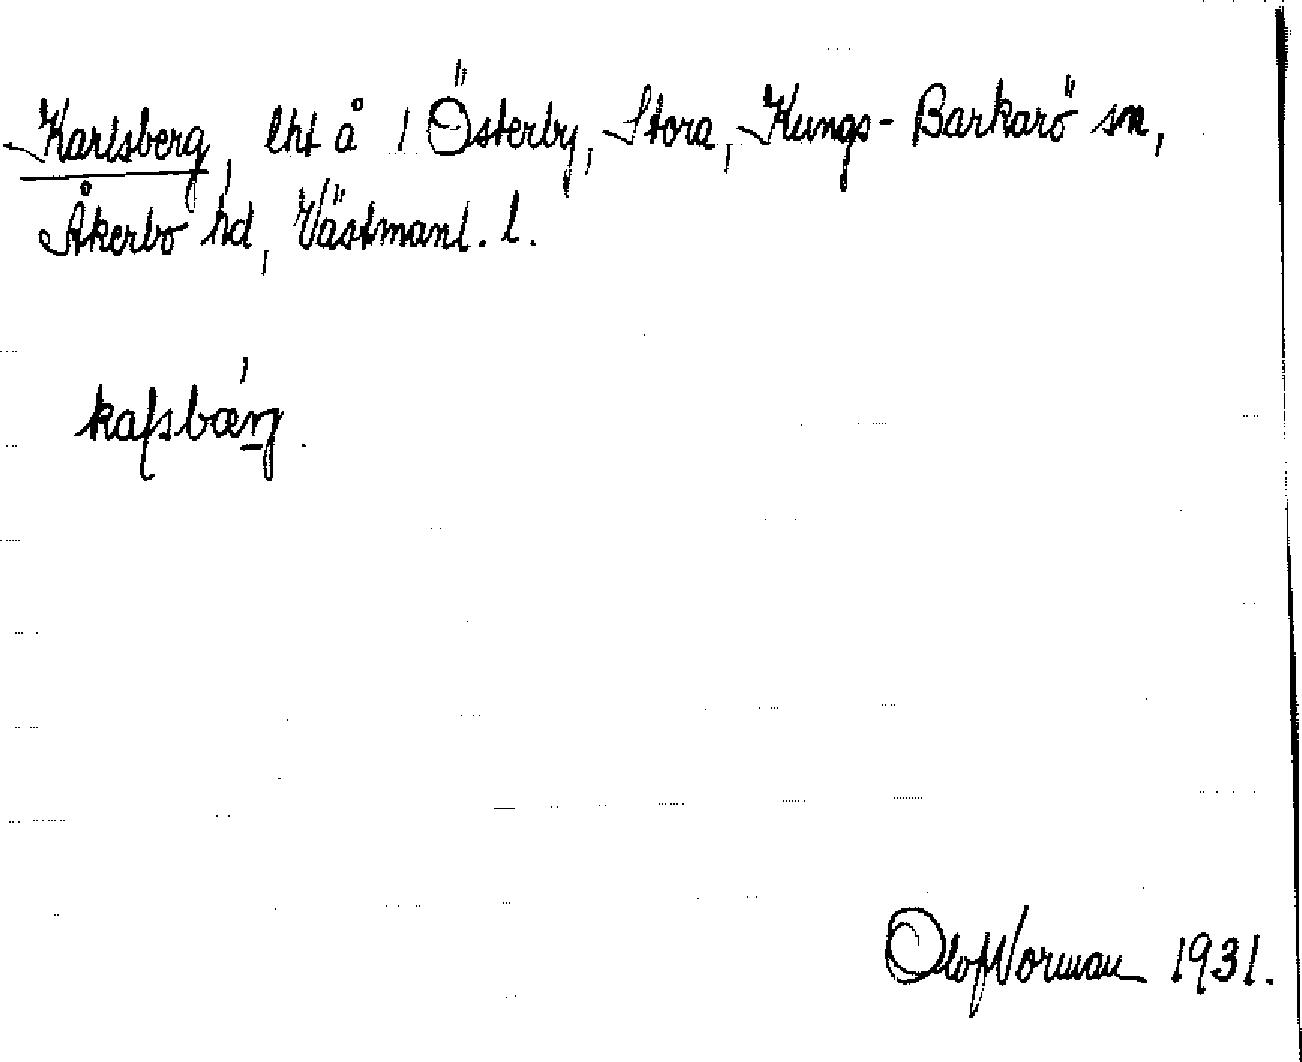 Karlsberg, lht å 1 Österby, Stora, Kungs-Barkarö sn,
Åkerbo hd, Västmanl. l.
kaʃsbæ̀ŋ.
Olof Norman 1931.